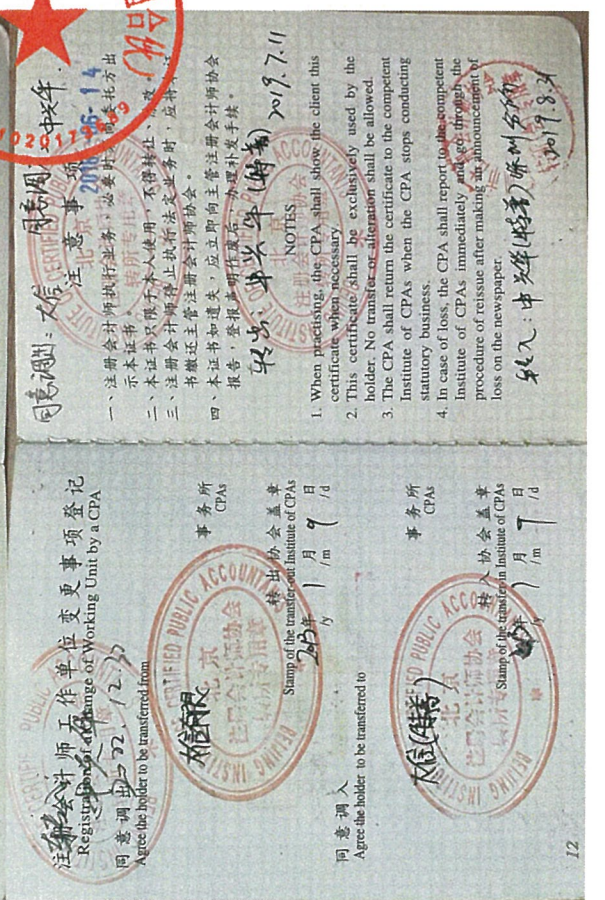 注册会计师工作单位变更事项登记
Registration of a Change of Working Unit by a CPA
同意调出
2022.12.30
Agree the holder to be transferred from
事务所
CPAs
CERTIFIED PUBLIC ACCOUNTANTS
北京
注册会计师协会
转所专用章
BEIJING INSTITUTE
转出协会盖章
Stamp of the transfer-out Institute of CPAs
年 1 月 9 日
/y /m /d
同意调入
Agree the holder to be transferred to
大信(特普)
事务所
CPAs
北京
注册会计师协会
转所专用章
BEIJING INSTITUTE
转入协会盖章
Stamp of the transfer-in Institute of CPAs
年 1 月 7 日
/y /m /d
12
同意调出:大信
同意调入:中兴华
注意事项
一、注册会计师执行业务,必要时须向委托方出
示本证书。
二、本证书只限于本人使用,不得转让、涂改。
三、注册会计师停止执行法定业务时,应将本证
书缴还主管注册会计师协会。
四、本证书如遗失,应立即向主管注册会计师协会
报告,登报声明作废后,办理补发手续。
转出:中兴华(特普) 2019.7.11
NOTES
1. When practising, the CPA shall show the client this
certificate when necessary.
2. This certificate shall be exclusively used by the
holder. No transfer or alteration shall be allowed.
3. The CPA shall return the certificate to the competent
Institute of CPAs when the CPA stops conducting
statutory business.
4. In case of loss, the CPA shall report to the competent
Institute of CPAs immediately and go through the
procedure of reissue after making an announcement of
loss on the newspaper.
转入:中兴华(特普)
2019.8.21